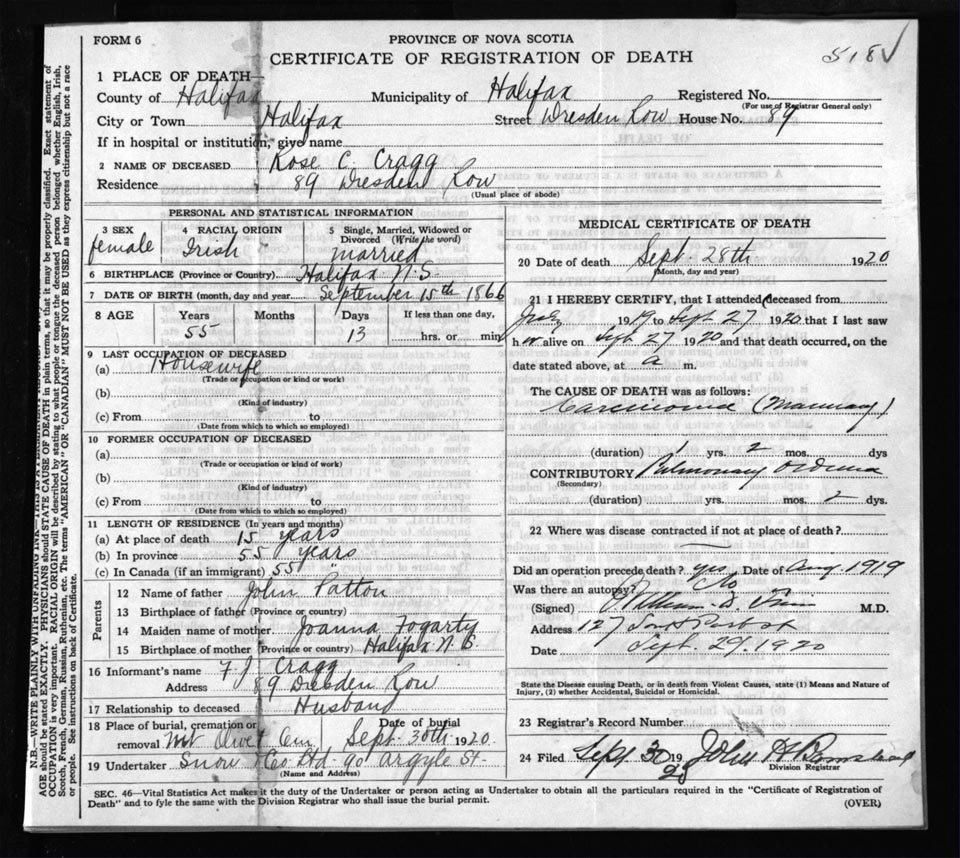 FORM 6
PROVINCE OF NOVA SCOTIA
CERTIFICATE OF REGISTRATION OF DEATH
518 ✓
1 PLACE OF DEATH—
County of Halifax Municipality of Halifax Registered No.
(For use of Registrar General only)
City or Town Halifax Street Dresden Row House No. 89
If in hospital or institution, give name
2 NAME OF DECEASED Rose C. Cragg
Residence 89 Dresden Row
(Usual place of abode)
PERSONAL AND STATISTICAL INFORMATION
3 SEX female
4 RACIAL ORIGIN Irish
5 Single, Married, Widowed or Divorced (Write the word) married
6 BIRTHPLACE (Province or Country) Halifax N.S.
7 DATE OF BIRTH (month, day and year) September 15th 1866
8 AGE Years Months Days If less than one day,
55 13 hrs. or min
9 LAST OCCUPATION OF DECEASED
(a) Housewife
(Trade or occupation or kind or work)
(b)
(Kind of industry)
(c) From to
(Date from which to which so employed)
10 FORMER OCCUPATION OF DECEASED
(a)
(Trade or occupation or kind of work)
(b)
(Kind of industry)
(c) From to
(Date from which to which so employed)
11 LENGTH OF RESIDENCE (In years and months)
(a) At place of death 15 years
(b) In province 55 years
(c) In Canada (if an immigrant) 55 "
Parents
12 Name of father John Patton
13 Birthplace of father (Province or country)
14 Maiden name of mother Joanna Fogarty
15 Birthplace of mother (Province or country) Halifax N.S.
16 Informant's name F J Cragg
Address 89 Dresden Row
17 Relationship to deceased Husband
18 Place of burial, cremation or removal Mt Olivet Cem Date of burial Sept. 30th 1920
19 Undertaker Snow & Co Ltd - 90 Argyle St.
(Name and Address)
MEDICAL CERTIFICATE OF DEATH
20 Date of death Sept. 28th 1920
(Month, day and year)
21 I HEREBY CERTIFY, that I attended deceased from
July 1919 to Sept 27 1920 that I last saw
her alive on Sept 27 1920 and that death occurred, on the
date stated above, at a m.
The CAUSE OF DEATH was as follows:
Carcinoma (Mammary)
(duration) 1 yrs. 2 mos. dys
CONTRIBUTORY Pulmonary Oedema
(Secondary)
(duration) yrs. mos. 2 dys.
22 Where was disease contracted if not at place of death?
Did an operation precede death? yes Date of Aug. 1919
Was there an autopsy? No
(Signed) William D. M.D.
Address 127 South Park St
Date Sept. 29. 1920
State the Disease causing Death, or in death from Violent Causes, state (1) Means and Nature of
Injury, (2) whether Accidental, Suicidal or Homicidal.
23 Registrar's Record Number
24 Filed Sept 30 1920 John H
Division Registrar
SEC. 46—Vital Statistics Act makes it the duty of the Undertaker or person acting as Undertaker to obtain all the particulars required in the "Certificate of Registration of
Death" and to fyle the same with the Division Registrar who shall issue the burial permit.
(OVER)
N.B.—WRITE PLAINLY WITH UNFADING INK—THIS IS
AGE should be stated EXACTLY. PHYSICIANS should STATE CAUSE OF DEATH in plain terms, so that it may be properly classified. Exact statement of
OCCUPATION is very important. RACIAL ORIGIN will be described by stating to what people or tongue the deceased person belonged whether English, Irish,
Scotch, French, German, Russian, Ruthenian, etc. The terms "AMERICAN" OR "CANADIAN" MUST NOT BE USED as they express citizenship but not a race
or people. See instructions on back of Certificate.